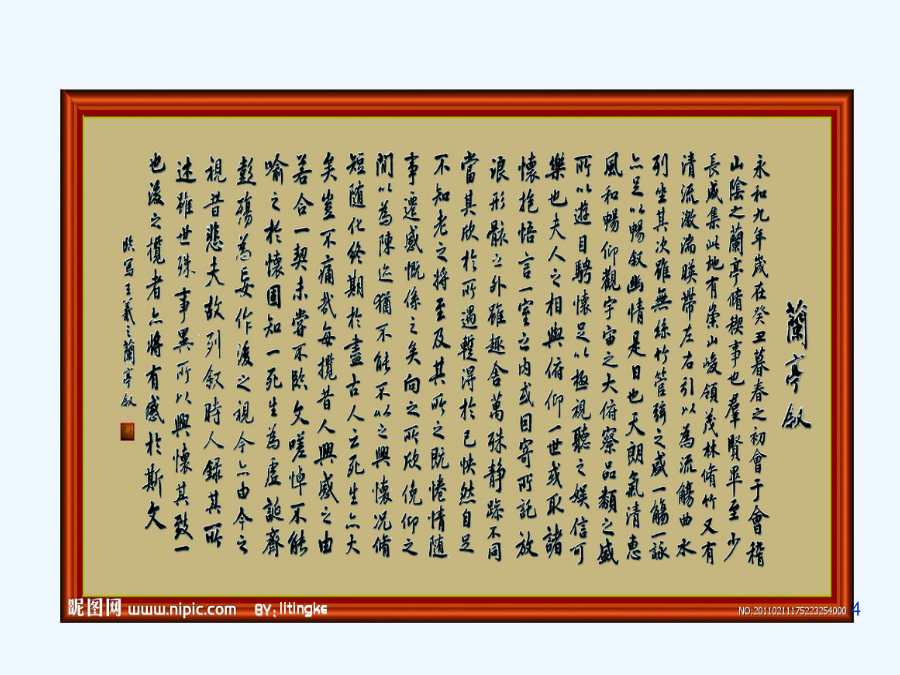 蘭亭叙
永和九年歲在癸丑暮春之初會于會稽
山陰之蘭亭脩稧事也羣賢畢至少
長咸集此地有崇山峻領茂林脩竹又有
清流激湍暎帶左右引以為流觴曲水
列坐其次雖無絲竹管絃之盛一觴一詠
亦足以暢叙幽情是日也天朗氣清惠
風和暢仰觀宇宙之大俯察品類之盛
所以遊目騁懷足以極視聽之娛信可
樂也夫人之相與俯仰一世或取諸
懷抱悟言一室之内或因寄所託放
浪形骸之外雖趣舍萬殊静躁不同
當其欣於所遇暫得於己快然自足
不知老之將至及其所之既惓情隨
事遷感慨係之矣向之所欣俛仰之
間以為陳迹猶不能不以之興懷况脩
短随化終期於盡古人云死生亦大
矣豈不痛哉每攬昔人興感之由
若合一契未嘗不臨文嗟悼不能
喻之於懷固知一死生為虛誕齊
彭殤為妄作後之視今亦由今之
視昔悲夫故列叙時人録其所
述雖世殊事異所以興懷其致一
也後之攬者亦將有感於斯文
臨写王羲之蘭亭叙
昵图网 www.nipic.com BY:litingke
NO:20110211175223254000
4